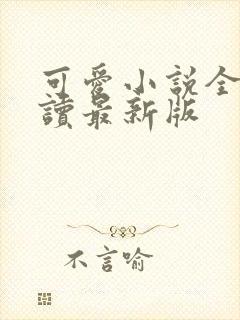 可愛小說全
讀最新版
不言喻